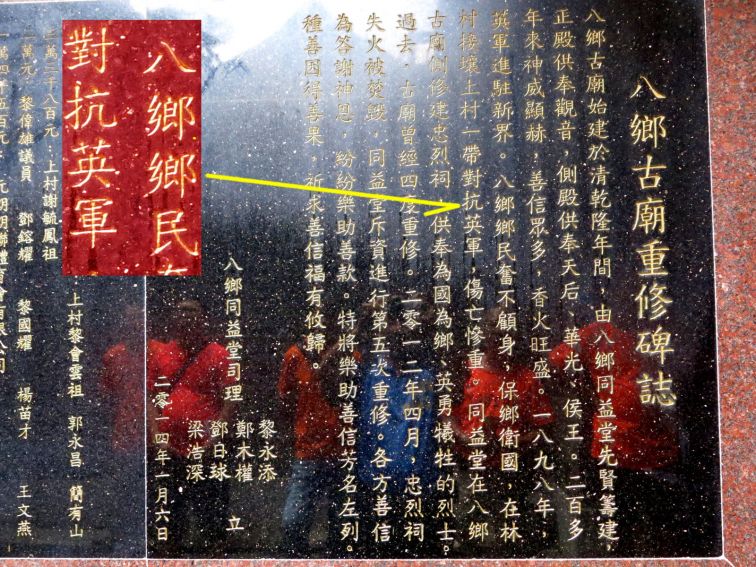 八鄉古廟重修碑誌
八鄉古廟始建於清乾隆年間，由八鄉同益堂先賢籌建，
正殿供奉觀音，側殿供奉天后、華光、侯王。二百多
年來神威顯赫，善信眾多，香火旺盛。一八九八年，
英軍進駐新界。八鄉鄉民奮不顧身，保鄉衛國，在林
村接壤上村一帶對抗英軍，傷亡慘重。同益堂在八鄉
古廟側修建忠烈祠，供奉為國為鄉、英勇犧牲的烈士。
過去，古廟曾經四度重修。二零一二年四月，忠烈祠
失火被焚毀，同益堂斥資進行第五次重修。各方善信
為答謝神恩，紛紛樂助善款。特將樂助善信芳名左列。
種善因得善果，祈求善信福有攸歸。
八鄉同益堂司理
黎永添
鄭木權
鄧日球
梁浩深
立
二零一四年一月六日
八鄉鄉民
對抗英軍
上村黎會雲祖 郭永昌 簡有山
二萬二千八百元：上村謝毓鳳祖
二萬元 黎偉雄議員 鄧鎔耀 黎國耀 楊苗才 王文燕
一萬四千五百元